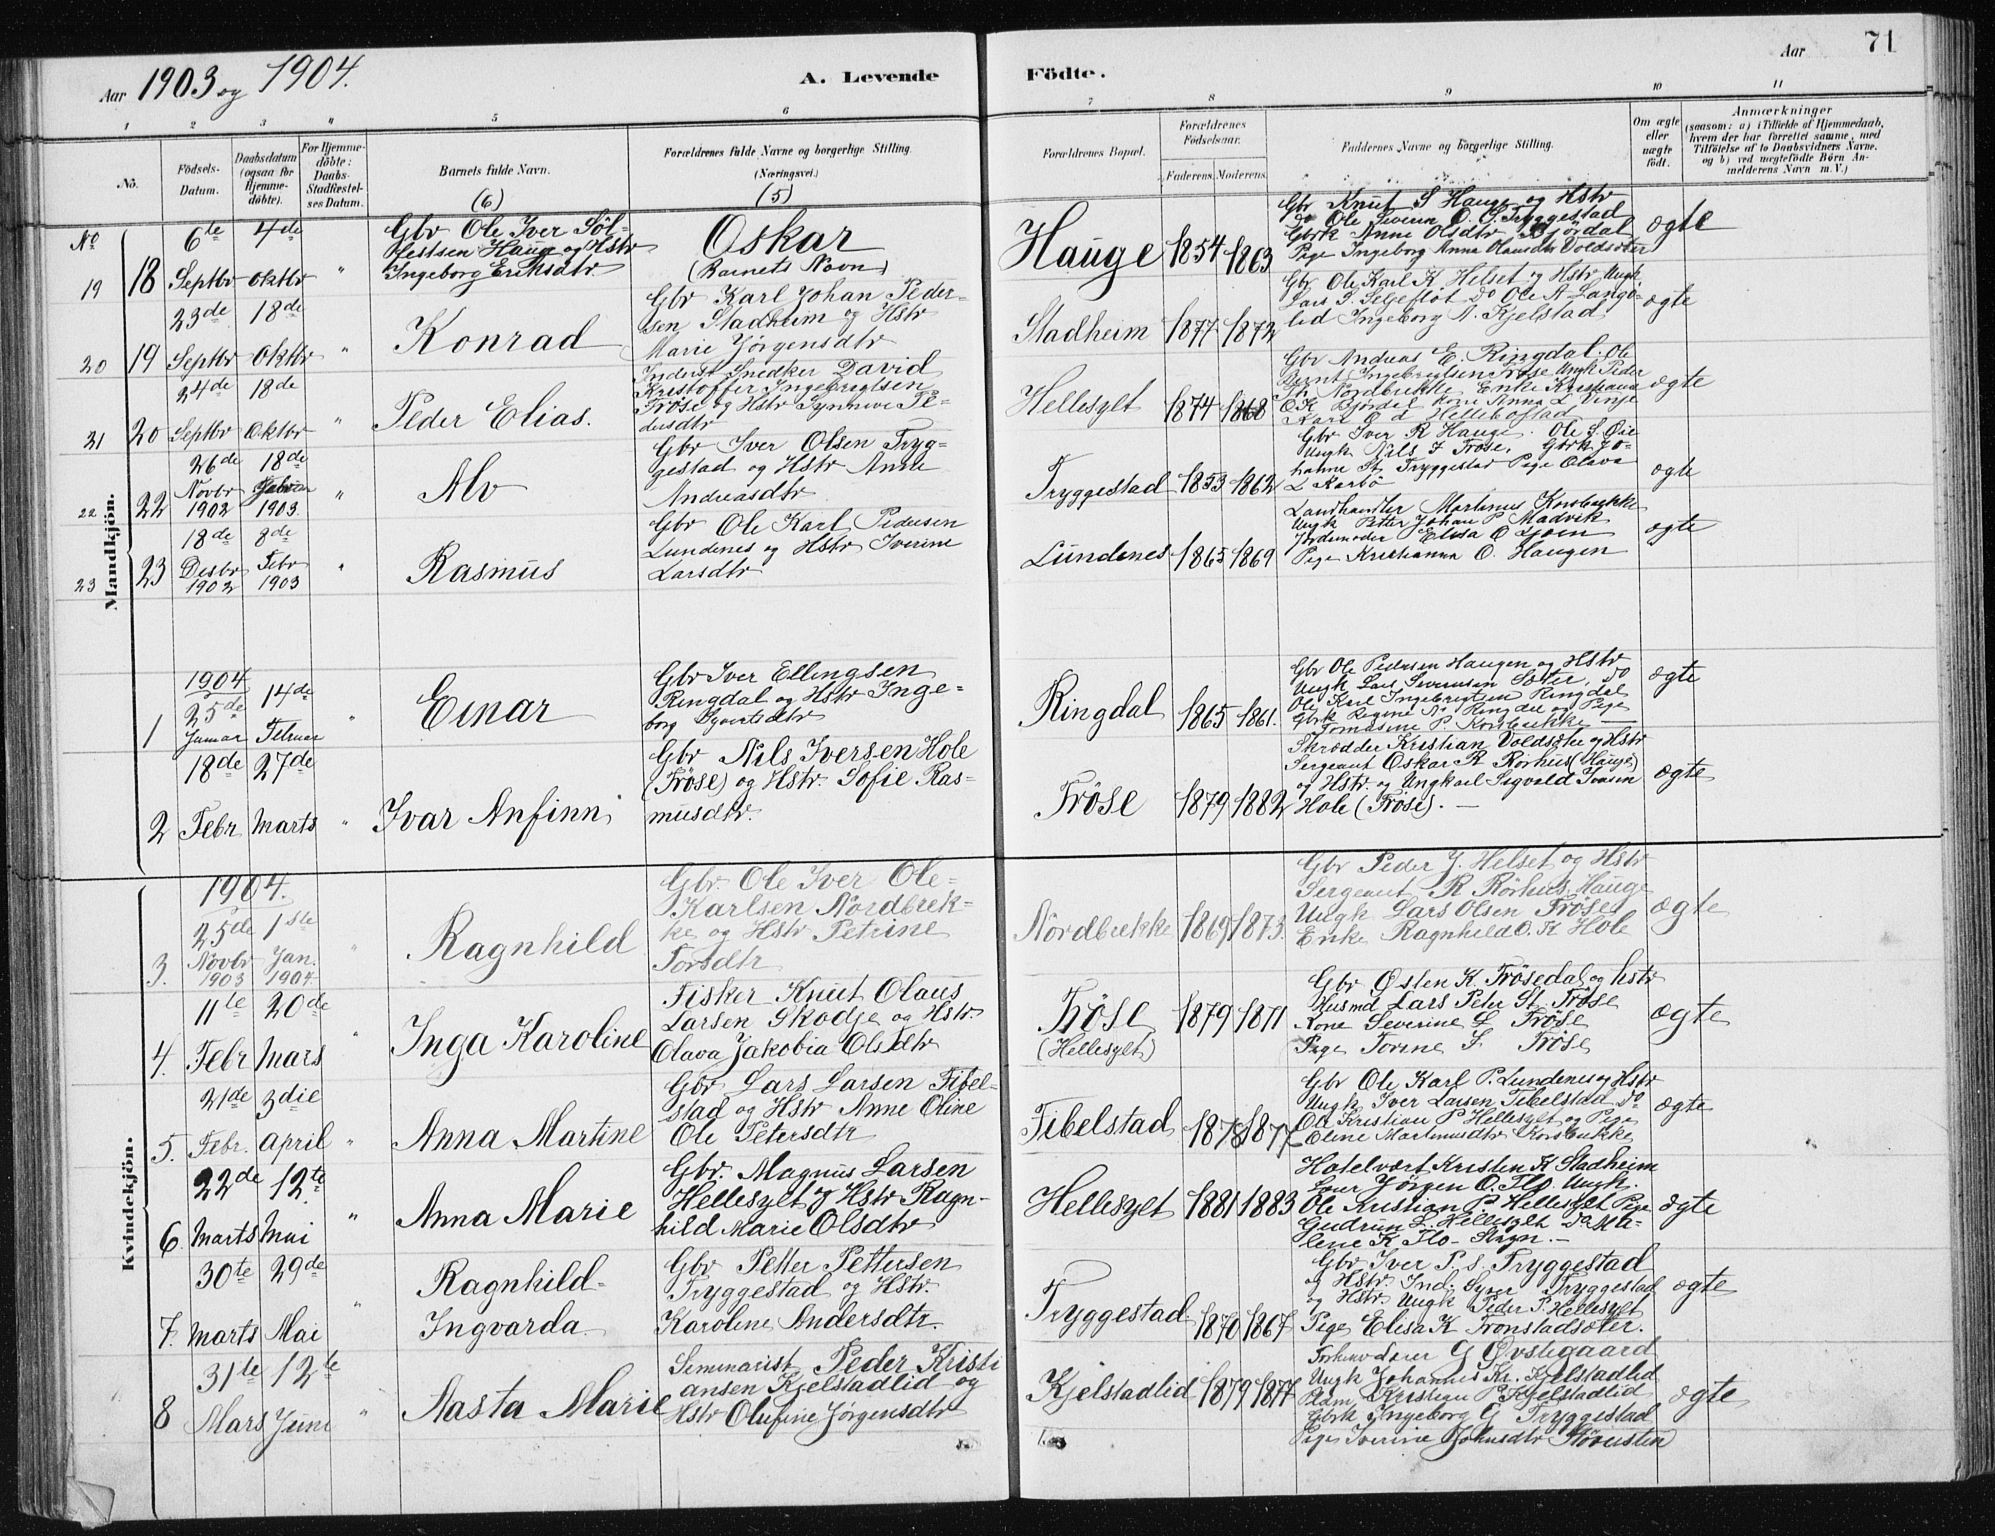 Aar 1903 og 1904.
A. Levende
Födte.
Aar
71
1 2 3 " 5 6 7 8 9 10 11
No.
Födsels-
Datum.
Daabsdatum
(ogsaa for
Hjemme-
döbte).
For Hjemme-
döbte:
Daabs-
Stadfæstel-
ses Datum.
Barnets fulde Navn.
(6)
Forældrenes fulde Navne og borgerlige Stilling.
(Næringsvei.)
(5)
Forældrenes Bopæl.
Forældrenes
Födselsaar.
Faderens. Moderens.
Faddernes Navne og borgerlige Stilling.
Om ægte
eller
uægte
födt.
Anmærkninger
(saasom: a) i Tilfælde af Hjemmedaab,
hvem der har forrettet samme, med
Tilföielse af to Daabsvidners Navne,
og b) ved uægtefödte Börn An-
melderens Navn m.V.)
Mandkjön.
No
19 18
6te Septbr
4de Oktbr
"
Gbr Ole Iver Söl-
festsen Hauge og Hstr
Ingeborg Eriksdtr
Oskar
(Barnets Navn)
Hauge 1854 1863
Gbr Knut S Hauge og Hstr
do Ole Severin O. S. Tryggestad
Gbrk Anne Olsdtr Björdal
Pige Ingeborg Anna Olausdtr Voldsæter
ægte
20 19
23de Septbr
18de Oktbr
"
Konrad
Gbr Karl Johan Peder-
sen Stadheim og Hstr
Marie Jörgensdtr
Stadheim 1877 1872
Gbr Ole Karl K Helset og Hstr Ungk
Lars S. Seljeflot Do Ole A Langö-
lid Ingeborg A. Kjelstad
ægte
21 20
24de Septbr
18de Oktbr
"
Peder Elias.
Inderst Snedker David
Kristoffer Ingebrigtsen
Fröse og Hstr Synnive Pe-
dersdtr
Hellesylt 1874 1868
Gbr Andreas E. Ringdal. Ole
Bernt Ingebrigtsen Fröse Ungk Peder
Th Nordbrekke, Enke Kristiana
O K Björdal Kone Anna L Vinje
Karl O d Hellebostad
ægte
22 22
26de Novbr 1902
18de Januar 1903.
"
Alv
Gbr Iver Olsen Tryg-
gestad og Hstr Anne
Andreasdtr
Tryggestad 1853 1862
Gbr Iver R Hauge. Ole S. Öie
Ungk Nils J Fröse, Gbrk Jo-
hanne St. Tryggestad Pige Olava
L Karbö
ægte
23 23
18de Desbr 1902
8de Febr 1903
"
Rasmus
Gbr Ole Karl Pedersen
Lundenes og Hstr Iverine
Larsdtr
Lundenes 1865 1869
Landhandler Martinus Korsbrekke
Ungk Petter Johan P Madvik
Jordemoder Elisa O Ljöen
Pige Kristianna O. Haugen
ægte
1904
1
25de Januar
14de Februar
"
Einar
Gbr Iver Ellingsen
Ringdal og Hstr Inge-
borg Syvertsdtr
Ringdal 1865 1861.
Gbr Ole Pedersen Haugen og Hstr
Ungk Lars Severinsen Sæter, Do
Ole Karl Ingebrigtsen Ringdal
Gbrk Regine N. Ringdal og Pige
Tomasine P Korsbrekke —
ægte
2
18de Febr
27de Marts
"
Ivar Anfinn
Gbr Nils Iversen Hole
(Fröse) og Hstr. Sofie Ras-
musdtr.
Fröse 1879 1882
Skrædder Kristian Voldsæter og Hstr
Sergeant Oskar R Rörhus (Hauge)
og Hstr. og Ungkarl Sigvald Iversen
Hole (Fröse). —
ægte
Kvindekjön.
1904.
3.
25de Novbr 1903
1ste Jan. 1904.
"
Ragnhild
Gbr. Ole Iver Ole-
Karlsen Nordbrek-
ke og Hstr Petrine
Torsdtr
Nordbrekke 1869 1873
Gbr Peder J. Helset og Hstr
Sergeant R Rörhus Hauge
Ungk Lars Olsen Fröse
Enke Ragnhild O. K Hole
ægte
4.
11te Febr
20de Mars
"
Inga Karoline
Fisker Knut Olaus
Larsen Skodje og Hstr.
Olava Jakobia Olsdtr
Fröse
(Hellesylt)
1879 1871
Gbr Østen K. Frösedal og hstr
Husmd Lars Peter St. Fröse
Kone Severine L Fröse
Pige Torine J. Fröse
ægte
5.
21de Febr.
3die April
"
Anna Martine
Gbr Lars Larsen Fibel-
stad og Hstr Anne Oline
Ole Petersdtr
Fibelstad 1878 1877
Gbr Ole Karl P. Lundenes og Hstr
Ungk Iver Larsen Fibelstad Do
Ole Kristian P Hellesylt og Pige
Oline Martinusdtr Korsbrekke
ægte
6
22de Marts
12te Mai
"
Anna Marie
Gbr. Magnus Larsen
Hellesylt og Hstr Ragn-
hild Marie Olsdtr
Hellesylt 1881 1883
Hotelvært Kristen K Stadheim
Lærer Jörgen O. Flo. Ungk.
Ole Kristian P. Hellesylt Pige
Gudrun L. Hellesylt Do Ma-
lene K Flo
ægte
7.
30te Marts
29de Mai
"
Ragnhild-
Ingvarda
Gbr Petter Pettersen
Tryggestad og Hstr.
Karoline Andersdtr.
Tryggestad 1870 1867
Gbr Iver P. s. Tryggestad
og Hstr. Ind. Syver Tryggestad
og Hstr. Ungk Peder P. Hellesylt
Pige Elisa K Tronstadsæter.
ægte
8
31te Mars
12te Juni
"
Aasta Marie
Seminarist Peder Kristi
ansen Kjelstadlid og
Hstr Olufine Jörgensdtr
Kjelstadlid 1879 1877
Forhenv Lærer G Øvstegaard
Ungk Johannes Kr. Kjelstadlid
Pldm Kristian P Kjelstadlid
Gbrk Ingeborg G Tryggestad
Pige Iverine Johnsdtr
ægte